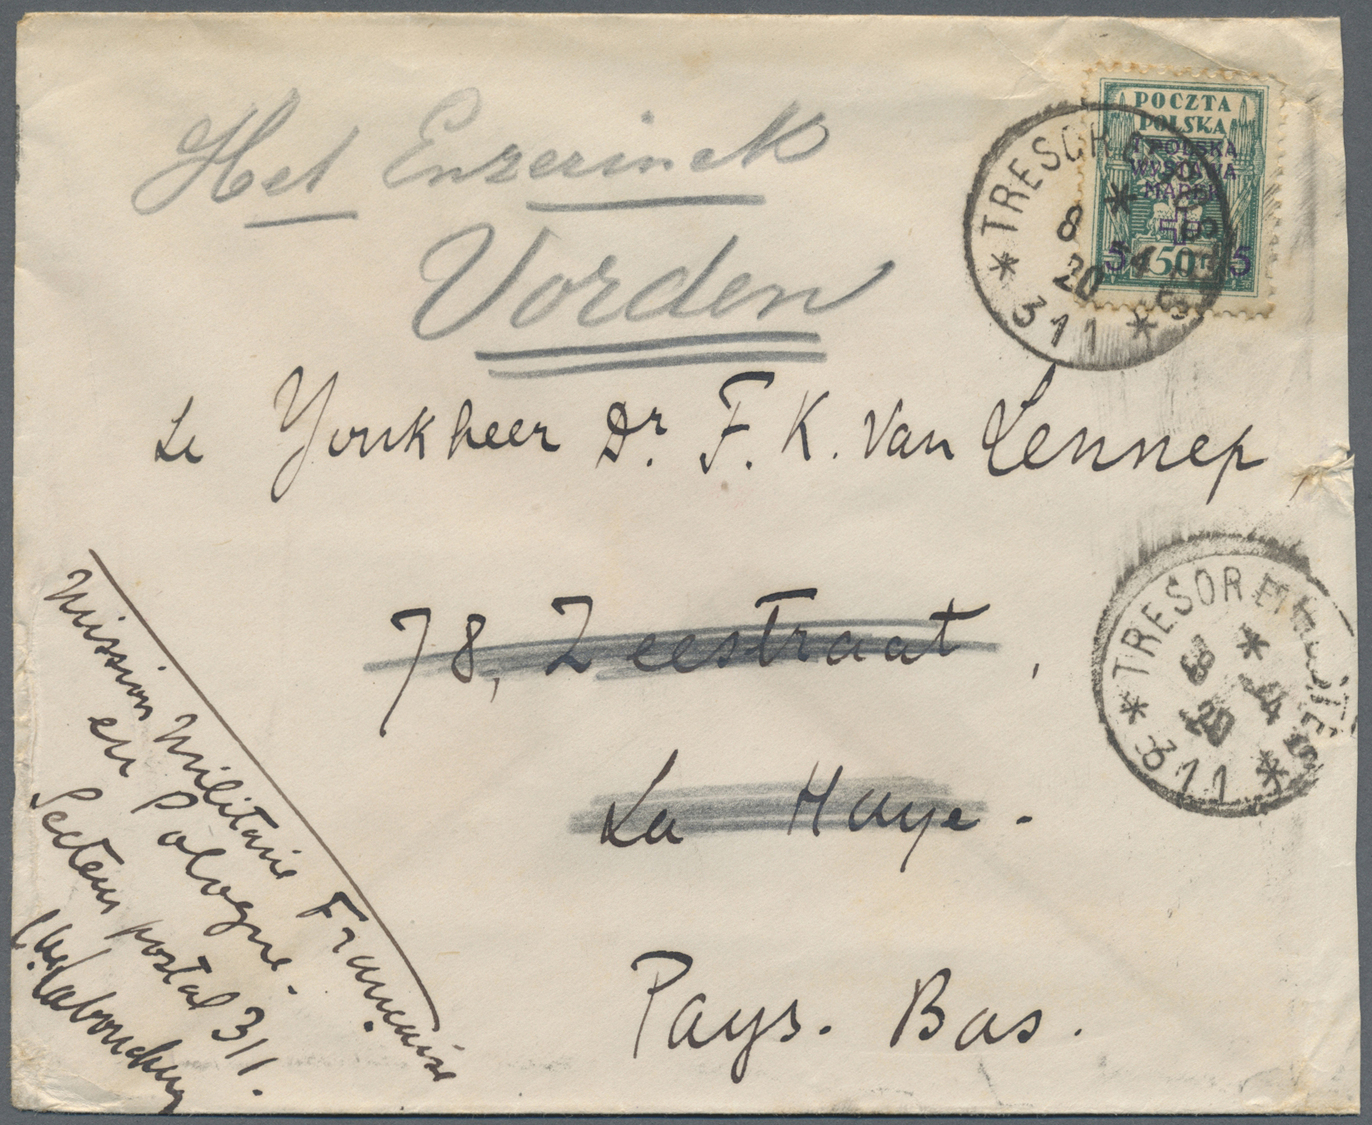 Het Enzerinck
Vorden
POCZTA
POLSKA
I POLSKA
WYSTAWA
MAREK
5 50 5
* TRESOR
8 *
20 4
* 311 *
Le Yonkheer Dr. F. K. Van Lennep
78, Zeestraat,
La Haye.
Pays. Bas.
* TRESOR ET POSTES *
8 *
20 4
311
Mission Militaire Française
en Pologne.
Secteur postal 311.